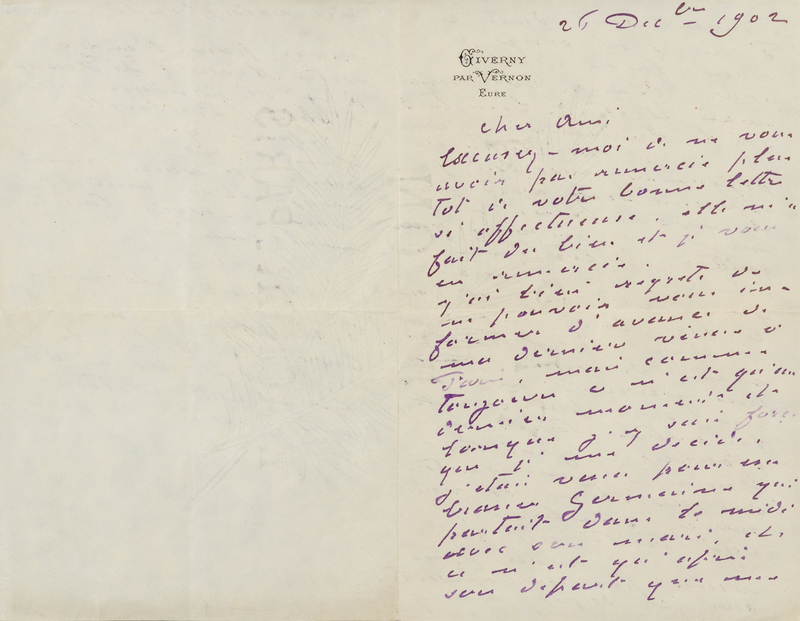 26 Dec br 1902
GIVERNY
PAR VERNON
EURE
cher ami
Excusez-moi de ne vous
avoir pas remercié plus
tot de votre bonne lettre
si affectueuse, elle m'a
fait du bien et je vous
en remercie.
J'ai bien regretté de
ne pouvoir vous in-
former d'avance de
ma dernière venue à
Paris, mais comme
toujours ce n'est qu'au
dernier moment et
lorsque j'y suis forcé
que je me décide.
J'étais venu pour em
brasser Germaine qui
partait dans le midi
avec son mari, et
ce n'est qu'après
son départ que